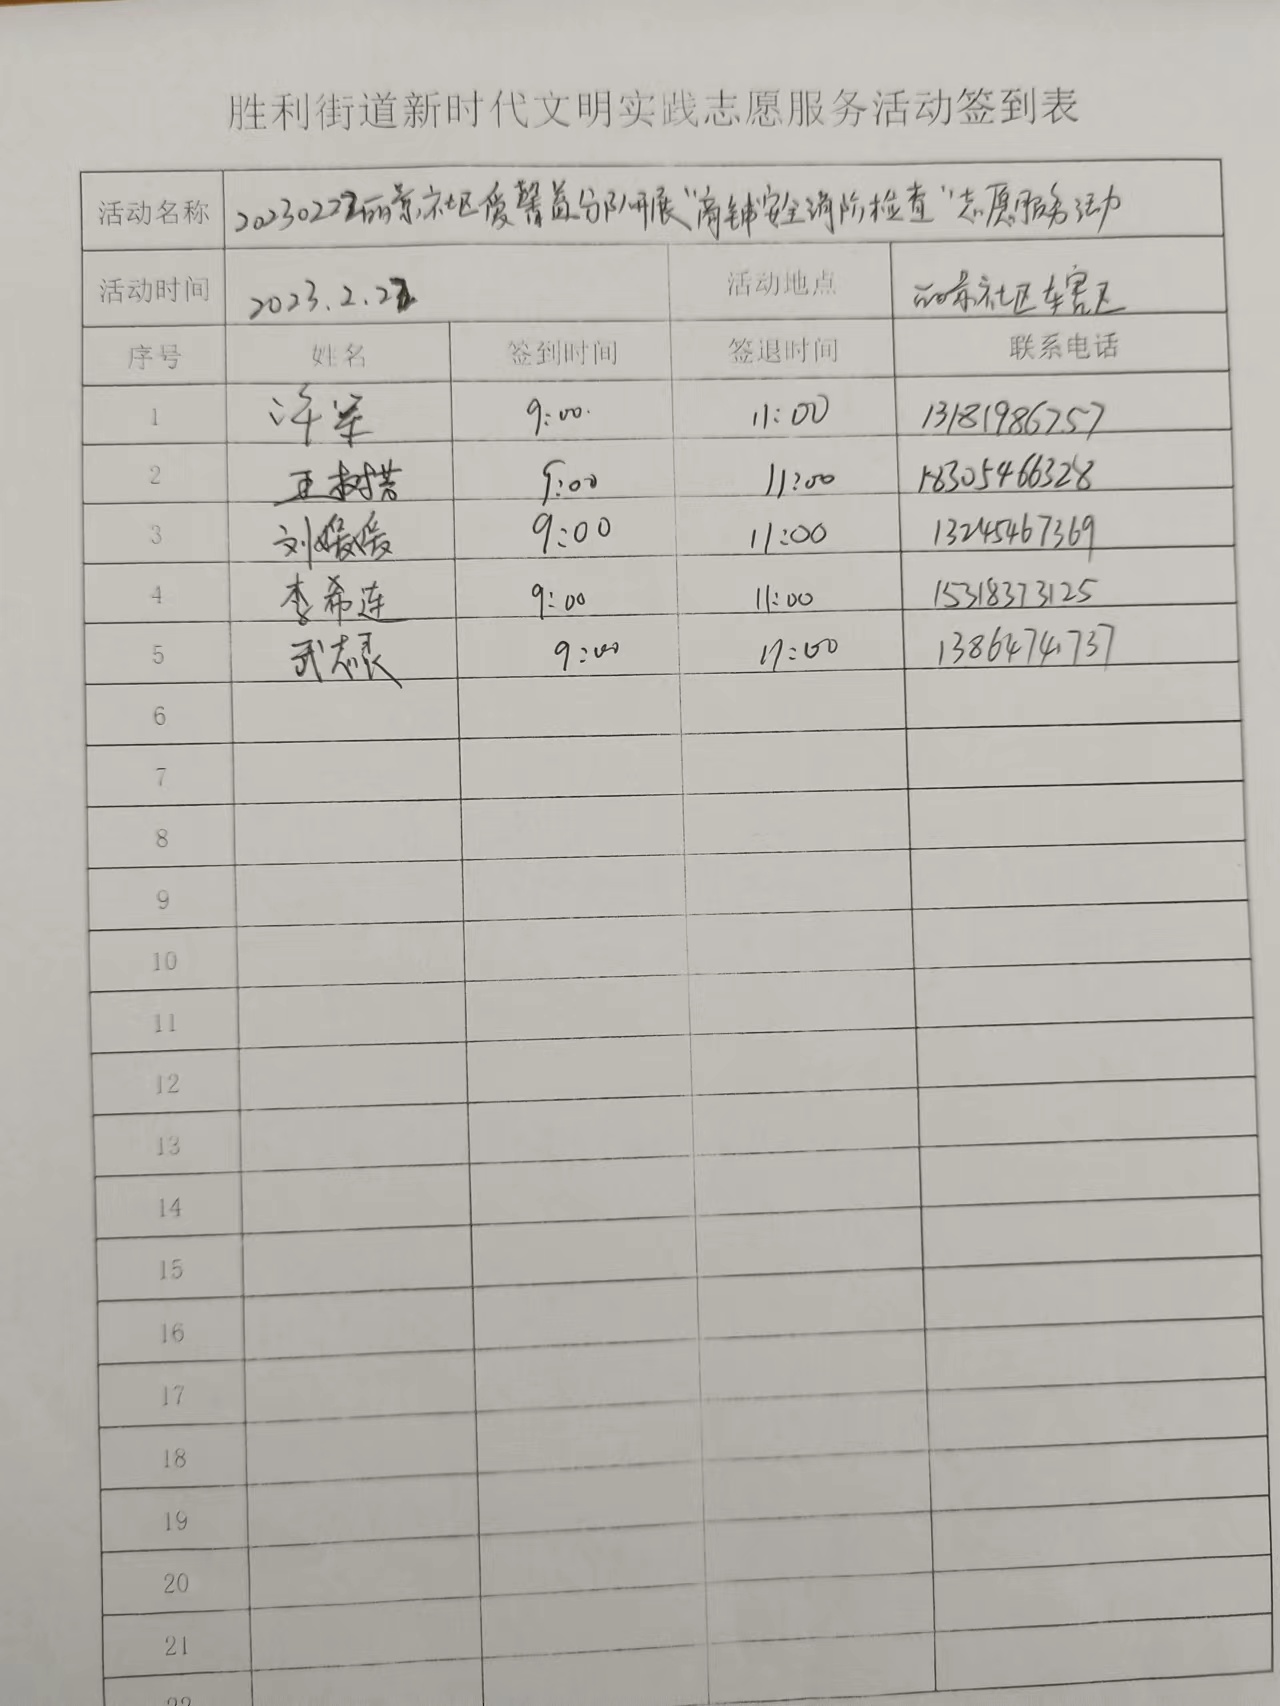 胜利街道新时代文明实践志愿服务活动签到表
活动名称 20230222丽景社区爱馨益分队开展“商铺安全消防检查”志愿服务活动
活动时间 2023.2.22 活动地点 丽景社区辖区
序号 姓名 签到时间 签退时间 联系电话
1 许军 9:00. 11:00 13181986757
2 王树 9:00 11:00 18305466328
3 刘媛媛 9:00 11:00 13245467369
4 李希连 9:00 11:00 15318373125
5 武志 9:00 11:00 13864741737
6
7
8
9
10
11
12
13
14
15
16
17
18
19
20
21
22